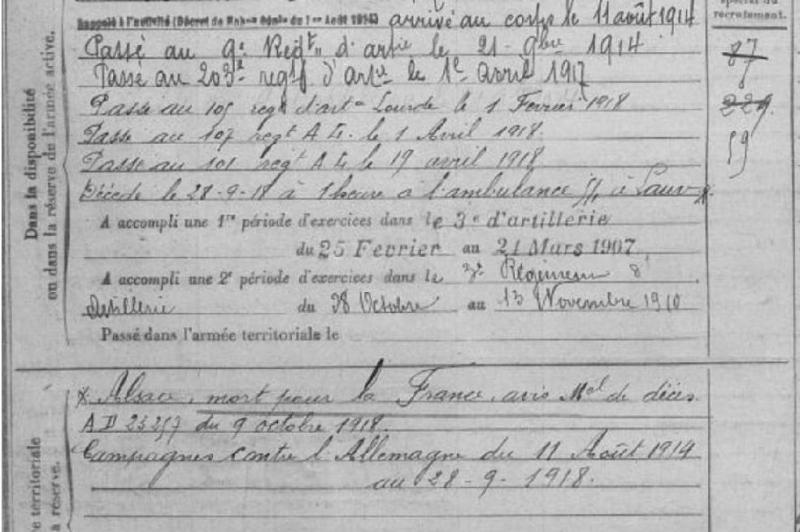 Rappelé à l'activité (Décret de Mobon Génle du 1er Août 1914) arrivé au corps le 11 août 1914
spécial du
recrutement.
Passé au 9e Régt d'artie le 21 9bre 1914
87
Passé au 203e regt d'artie le 1e avril 1917
Passé au 105 regt d'arte Lourde le 1 Fevrier 1918
229
Passé au 107 regt A L. le 1 Avril 1918.
Passé au 101 regt A L le 19 avril 1918
59
Décédé le 28-9-18 à 1 heure à l'ambulance à
A accompli une 1re période d'exercices dans le 3e d'artillerie
du 25 Fevrier au 21 Mars 1907
A accompli une 2e période d'exercices dans le 3e Régiment d'
Artillerie du 28 Octobre au 13 Novembre 1910
Passé dans l'armée territoriale le
Dans la disponibilité
ou dans la réserve de l'armée active.
Alsace, mort pour la France, avis Mel de décès
AD 23257 du 9 octobre 1918.
Campagnes contre l'Allemagne du 11 Août 1914
au 28-9-1918.
territoriale
réserve.